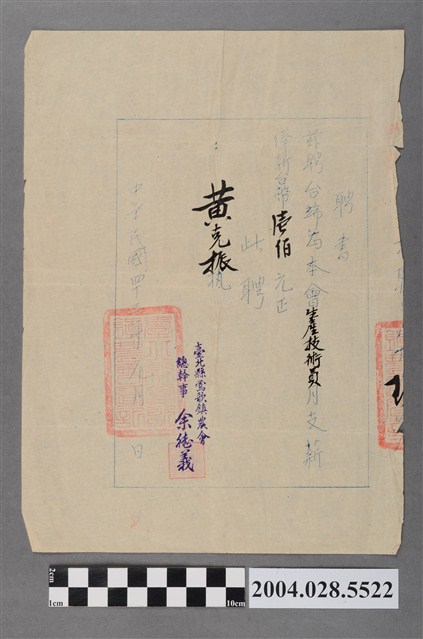 聘書
茲聘台端為本會生產技術員月支薪
俸新台幣壹佰元正
此聘
黃克振
臺北縣鶯歌鎮農會
總幹事 余德義
中華民國四十 年 元月 日
2cm
1cm
10cm
2004.028.5522